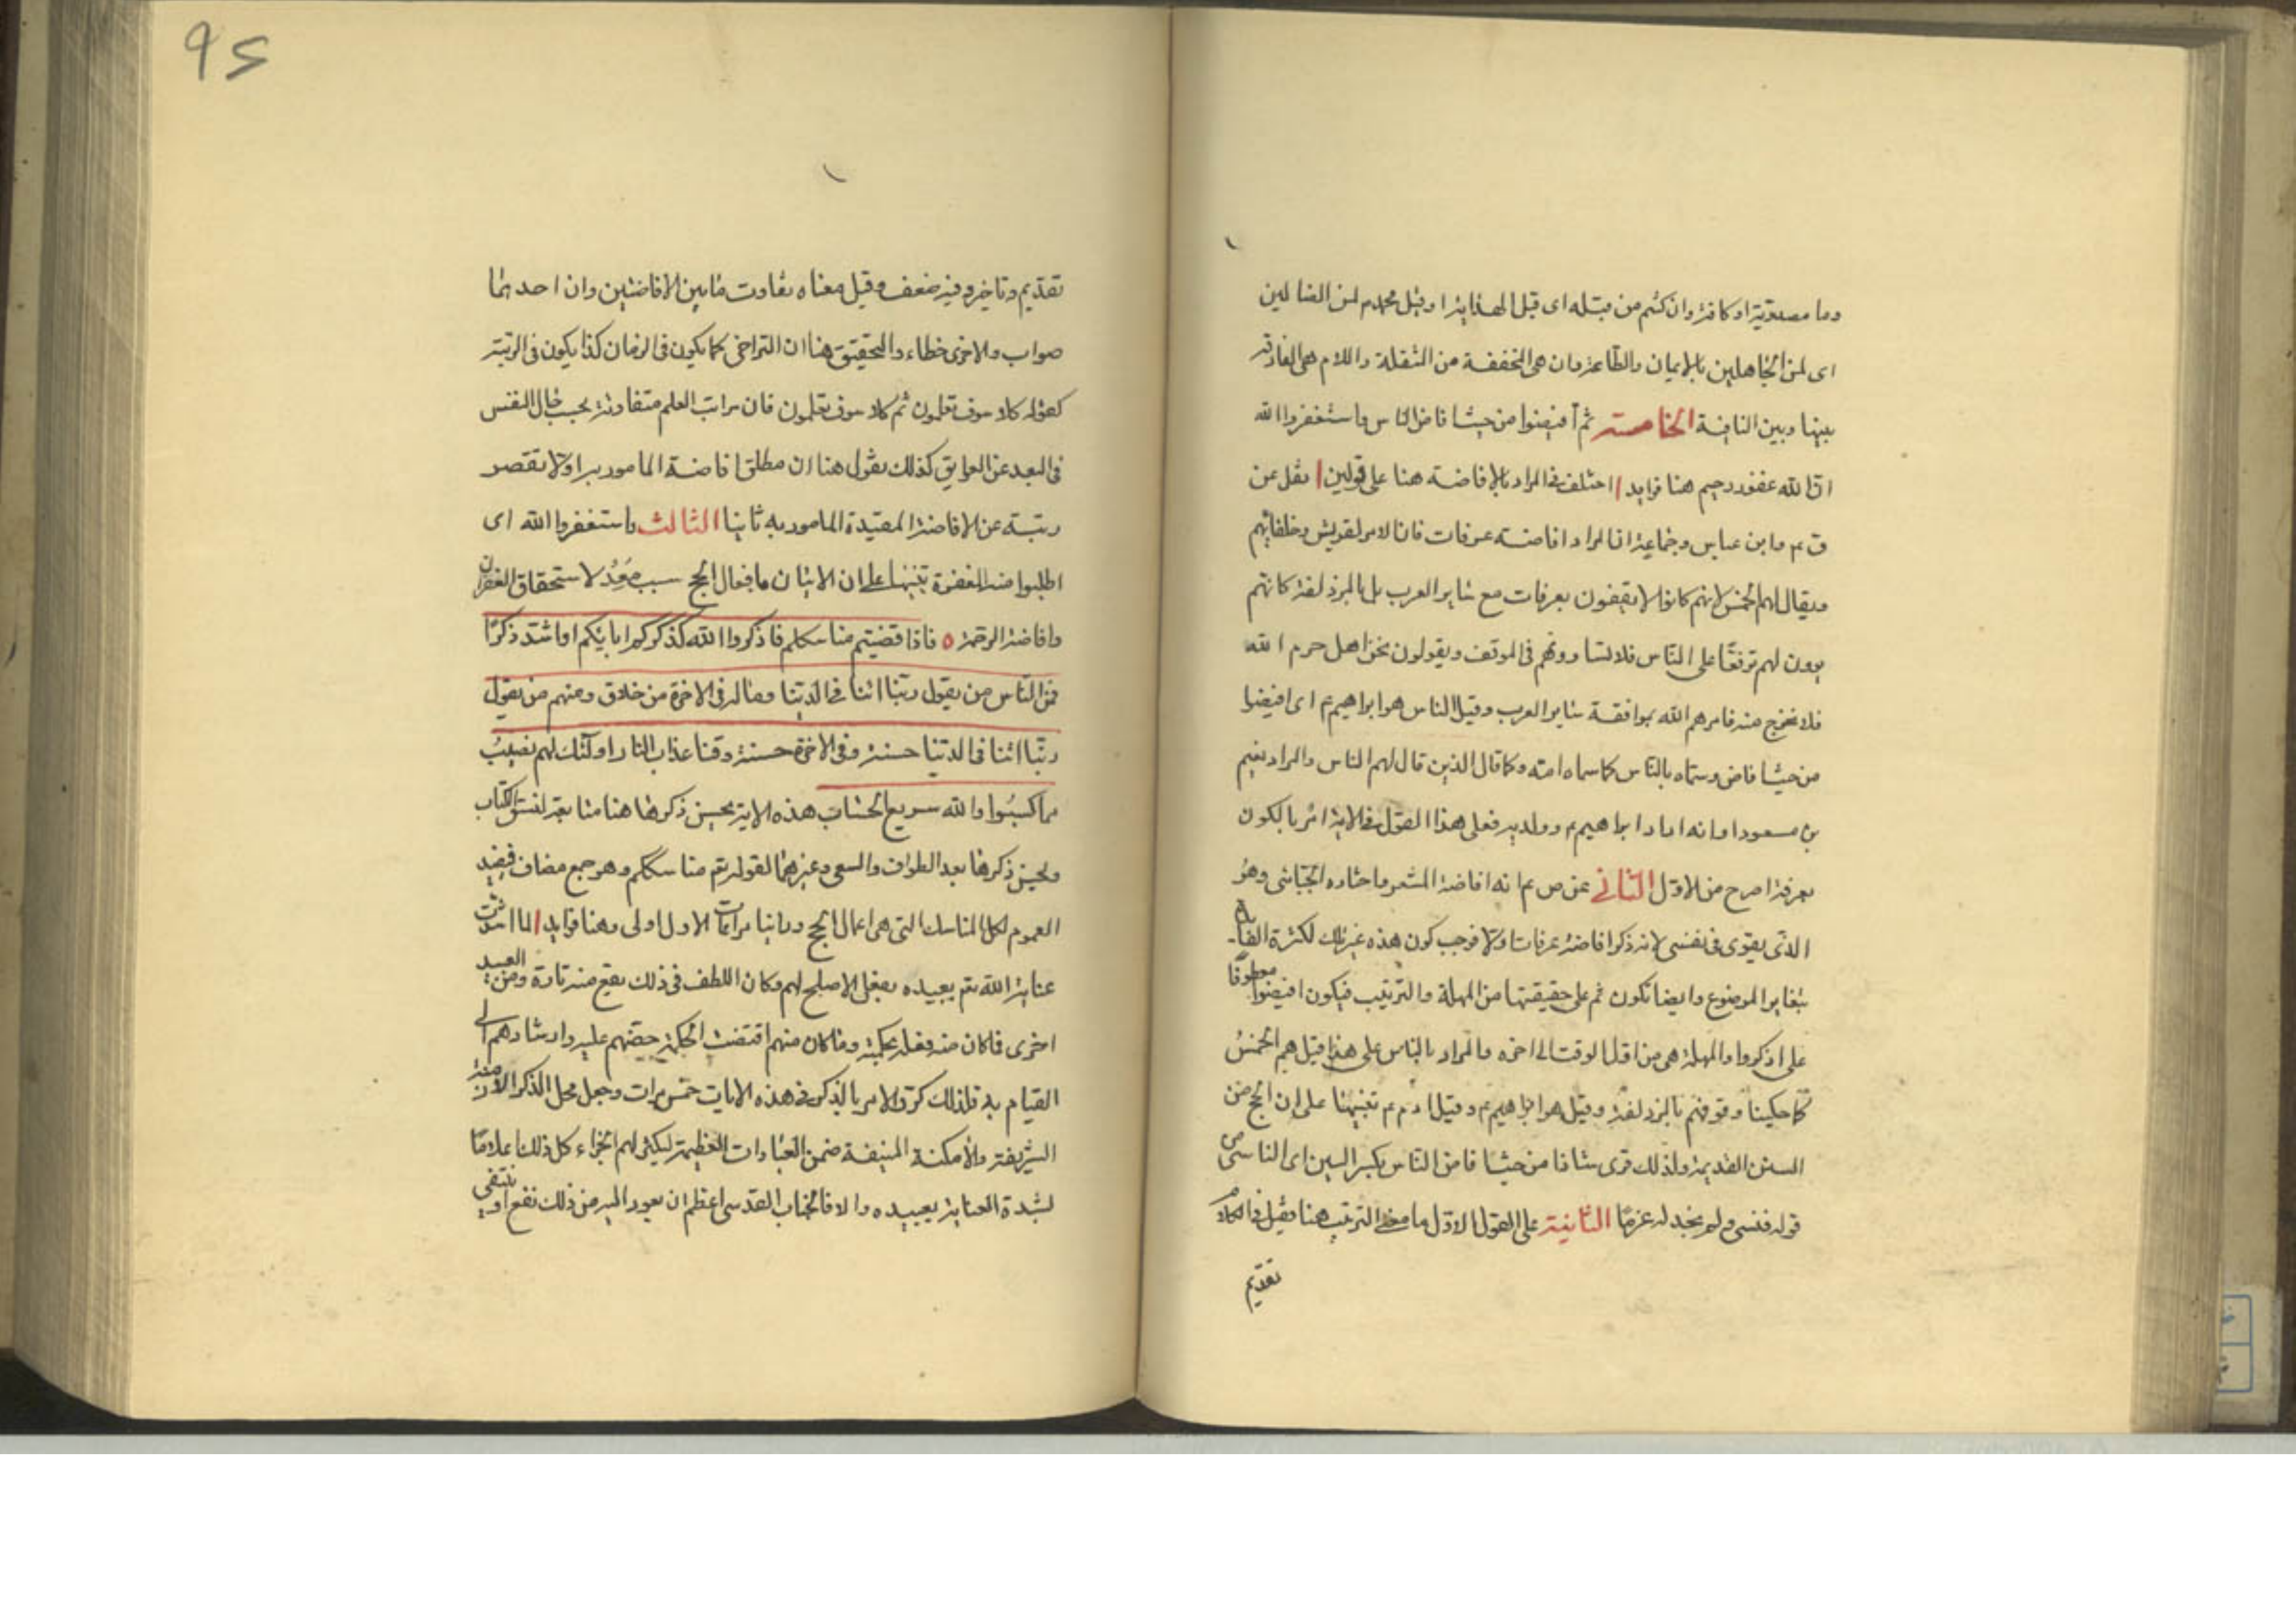 وما مصدرية او كافة وان كنتم من قبله اى قبل الهداية او قبل محمد م لمن الضالين
اى لمن الجاهلين بالايمان والطاعة وان هى المخففة من الثقلة واللام هى الفارقة
بينها وبين النافية الخامسة ثم أفيضوا من حيث افاض الناس واستغفروا الله
ان الله غفور رحيم هنا فوايد ا اختلف فى المراد بالافاضة هنا على قولين ا نقل عن
ق ع وابن عباس وجماعة ان المراد افاضة عرفات فان الامر لقريش وحلفائهم
ويقال لهم الحمس لانهم كانوا لا يقفون بعرفات مع سائر العرب بل بالمزدلفة كانهم
يرون لهم ترفعًا على الناس فلا يساوونهم فى الموقف ويقولون نحن اهل حرم الله
فلا نخرج منه فامرهم الله بموافقة سائر العرب وقيل الناس هو ابراهيم ع اى افيضوا
من حيث افاض وسماه بالناس كما سماه امة وكما قال الذين قال لهم الناس والمراد نعيم
بن مسعود او انه اراد ابراهيم ع وولديه فعلى هذا القول فى الاية امر بالكون
بعرفة اصرح من الاول الثانى عن ص ع انه افاضة المشعر واختاره الجبائى وهو
الذى يقوى فى نفسى لانه ذكر افاضة عرفات اولا فوجب كون هذه غير تلك لكثرة الفائدة
بتغاير الموضوع وايضا تكون ثم على حقيقتها من المهلة والترتيب فيكون افيضوا معطوفا
على اذكروا والمهلة هى من اول الوقت الى اخره والمراد بالناس على هذا قيل هم الحمسُ
كما حكينا وقوفهم بالمزدلفة وقيل هو ابراهيم ع وقيل ادم ع تنبيها على ان الحج من
السنن القديمة ولذلك قرى شاذا من حيث افاض الناس بكسر السين اى الناسى من
قوله فنسى ولم نجد له عزمًا الثانية على القول الاول ما معنى الترتيب هنا فقيل فى الكلام
تقديم
۹۶
تقديم وتاخير وفيه ضعف وقيل معناه تفاوت مابين الافاضتين وان احدهما
صواب والاخرى خطاء والتحقيق هنا ان التراخى كما يكون فى الزمان كذا يكون فى الرتبة
كقوله كلا سوف تعلمون ثم كلا سوف تعلمون فان مراتب العلم متفاوتة بحسب حال النفس
فى البعد عن العوايق كذلك نقول هنا ان مطلق افاضة المامور بها اولا تقصر
رتبة عن الافاضة المقيدة المامور به ثانيا الثالث واستغفروا الله اى
اطلبوا منه المغفرة تنبيها على ان الاتيان بافعال الحج سبب مُعِدٌ لاستحقاق الغفران
وافاضة الرحمة ٥ فاذا قضيتم مناسككم فاذكروا الله كذكركم اباءكم او اشد ذكرًا
فمن الناس من يقول ربنا اتنا فى الدنيا وماله فى الاخرة من خلاق ومنهم من يقول
ربنا اتنا فى الدنيا حسنة وفى الاخرة حسنة وقنا عذاب النار اولئك لهم نصيبُ
مما كسبُوا والله سريع الحساب هذه الاية يحسن ذكرها هنا متابعة لنسق الكتاب
ويحسن ذكرها بعد الطواف والسعى وغيرهما لقوله تع مناسككم وهو جمع مضاف فيفيد
العموم لكل المناسك التى هى اعمال الحج وراينا مراعات الاول اولى وهنا فوايد ا لما اشتدت
عناية الله تع بعبيده بفعل الاصلح لهم وكان اللطف فى ذلك يقع منه تارة ومن العبيد
اخرى فما كان منه فعله بحكمته وما كان منهم اقتضت الحكمة حضهم عليه وارشادهم الى
القيام به فلذلك كرر الامر بالذكر فى هذه الايات خمس مرات وجعل محل الذكر الازمنة
الشريفة والأمكنة المنيفة ضمن العبادات العظيمة ليكثر لهم الجزاء كل ذلك اعلامًا
لشدة العناية بعبيده والا فالجناب القدسى اعظم ان يعود اليه من ذلك نفع او ينتفى